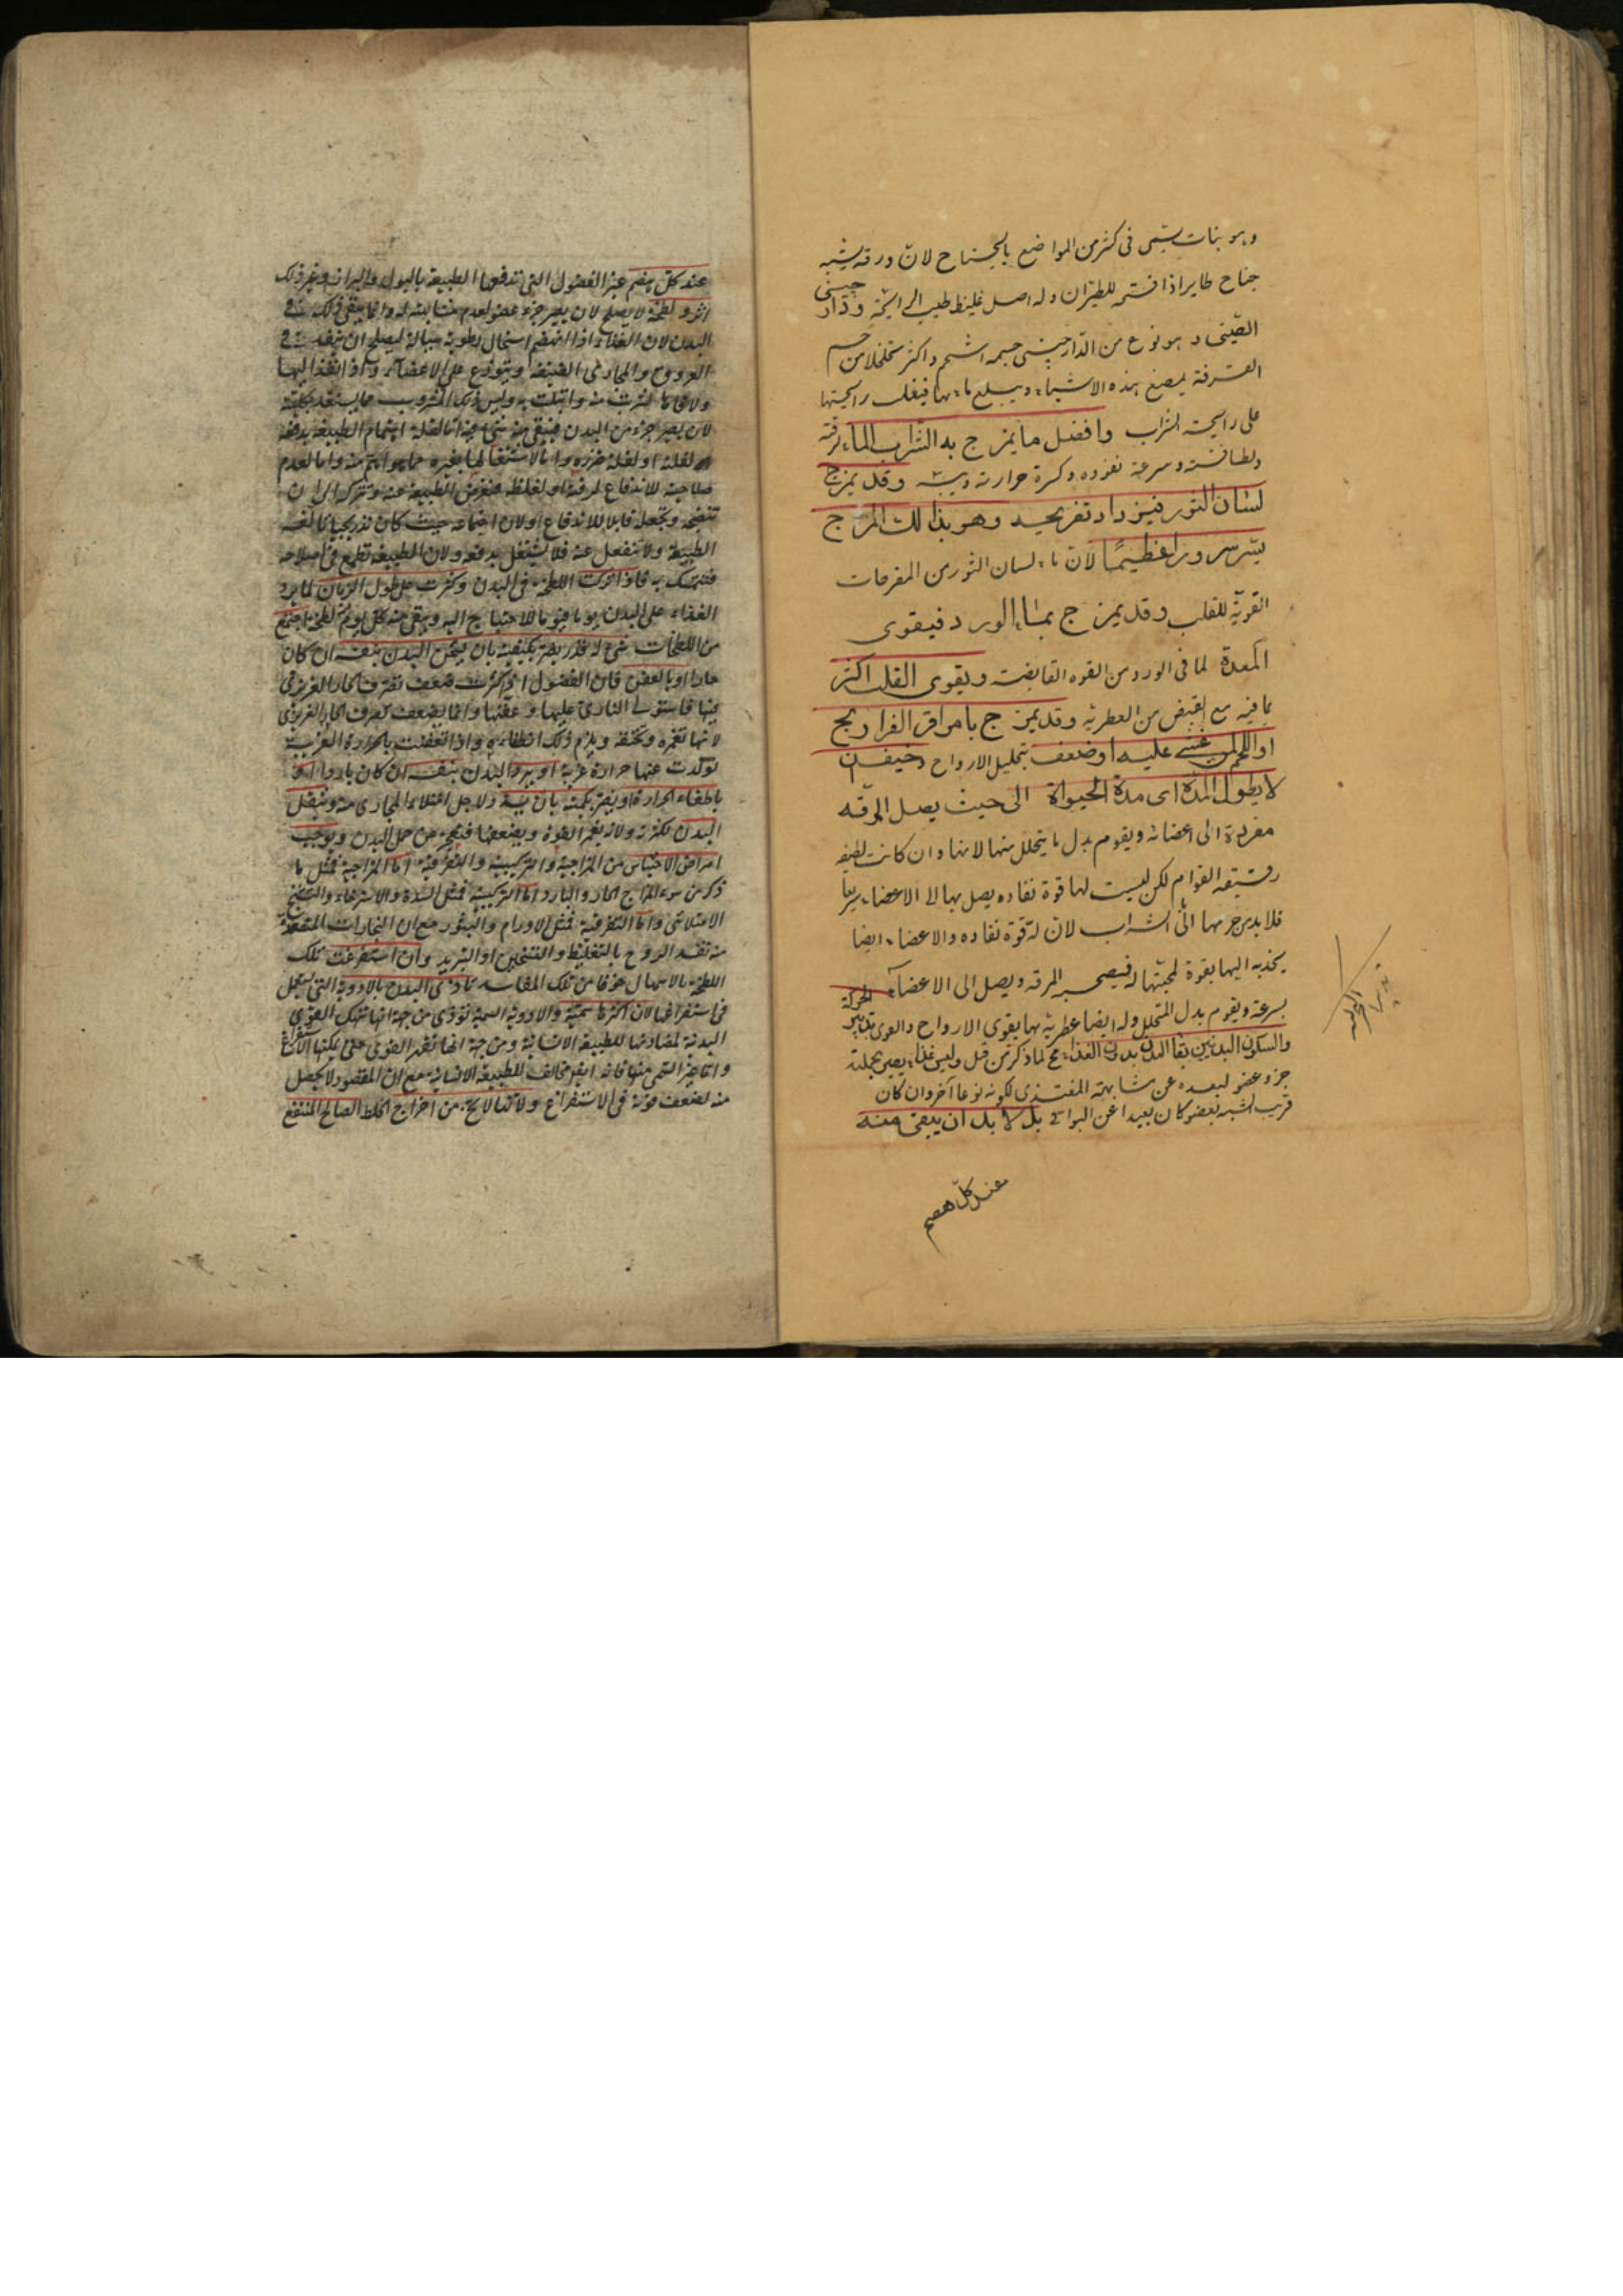 وهو نبات يسمى فى كثير من المواضع بالجناح لان ورقه يشبه
جناح طاير اذا فتحه للطيران وله اصل غليظ طيب الرائحة ودار چينى
الصينى وهو نوع من الدارچينى جسمه اشحم واكثر تخلخلا من جسم
القرفة يمضغ هذه الاشياء ويبلع ماءها فيغلب رايحتها
على رايحة الشراب وافضل ما يمزج به الشراب الماء لرقته
ولطافته وسرعة نفوذه وكسره حرارته ويبسه وقد يمزج
لسان الثور فيزداد تفريحه وهو بذالك المزاج
يسر سرورا عظيمًا لان ماء لسان الثور من المفرحات
القوية للقلب وقد يمزج بماء الورد فيقوى
المعدة لما فى الورد من القوه القابضة ويقوى القلب اكثر
بما فيه مع القبض من العطرية وقد يمزج بامراق الفراريج
او اللحم لمن غشى عليه او ضعف بتحليل الارواح وخيف ان
لا يطول المدة اى مدة الحيوة الى حيث يصل المرقه
مفردة الى اعضائه ويقوم بدل ما يتحلل منها لانها وان كانت لطيفه
رقيقه القوام لكن ليست لها قوة نفاذه يصل بها الى الاعضاء سريعا
فلا بد من مزجها الى الشراب لان له قوة نفاذه والاعضاء ايضا
يجذبه اليها بقوة لمحبتها له فيصحب المرقه ويصل الى الاعضاء
بسرعة ويقوم بدل المتحلل وله ايضا عطرية بها يقوى الارواح والقوى تدبير الحركة
والسكون البدنيين بقاء البدن بدون الغذاء مح لما ذكر من قبل وليس غذاء يصير بجملته
جزء عضو لبعده عن مشابهة المغتذى لكونه نوعا آخر وان كان
قريب الشبه بعضو كان بعيدا عن البواقى بل لا بد ان يبقى منه
عند كل هضم
تدبير الحركة
عند كل هضم عنه الفضول التى تدفعها الطبيعة بالبول والبراز وغير ذلك
اثر ولطخة لا يصلح لان يصير جزء عضو لعدم مشابهته له وانما يبقى ذلك فى
البدن لان الغذاء اذا انهضم استحال رطوبة سيالة ليصلح ان ينفذ فى
العروق والمجارى الضيقة ويتوزع على الاعضاء واذا نفذ اليها
لان يصير جزء من البدن فيبقى منه شئ اما لقلة اهتمام الطبيعة بدفعه
لقلته او لقلة ضرره واما لاشتغالها بغيره مما هو اهم منه واما لعدم
صلاحيته للاندفاع لرقته او لغلظه فيعرض الطبيعة عنه وتتركه الى ان
تنضجه وتجعله قابلا للاندفاع او لان اجتماعه حيث كان تدريجيا تالفه
الطبيعة ولا تنفعل عنه فلا يشتغل بدفعه ولان الطبيعة تطمع فى اصلاحه
فتتمسك به فاذا تركت اللطخة فى البدن وكثرت على طول الزمان لما يرد
الغذاء على البدن يوما فيوما للاحتياج اليه ويبقى منه كل يوم لطخة اجتمع
من اللطخات شئ له قدر يضر بكيفيته بان يسخن البدن بنفسه ان كان
حارا او بالعفن فان الفضول اذا كثرت ضعف تصرف الحار الغريزى
فيها فاستولى النارى عليها وعفنها وانما يضعف تصرف الحار الغريزى
لانها تغمره وتخنقه ويلزم ذلك انطفاءه واذا تعفنت بالحرارة الغريبة
تولدت عنها حرارة غريبة او يبرد البدن بنفسه ان كان باردا او
باطفاء الحرارة او يضر بكميته بان يسد ولاجل امتلاء المجارى منه ويثقل
البدن لكثرته ولانه يغمر القوة ويضعفها فيعجز عن حمل البدن ويوجب
امراض الاحتباس من المزاجية والتركيبية والتفرقية اما المزاجية فمثل ما
ذكر من سوء المزاج الحار والبارد اما التركيبية فمثل السدة والاسترخاء والتشنج
الامتلائى واما التفرقية فمثل الاورام والبثور مع ان البخارات المتصعدة
منه تفسد الروح بالتغليظ والتسخين او التبريد وان استفرغت تلك
اللطخة بالاسهال خوفا من تلك المفاسد تاذى البدن بالادوية التى يستعمل
فى استفراغها لان اكثرها سمية والادوية السمية توذى من جهة انها تنهك القوى
البدنية لمضادتها للطبيعة الانسانية ومن جهة انها تقهر القوى حتى يمكنها الاستفراغ
واما غير السمى منها فانه ايضا مخالف للطبيعة الانسانية مع ان المقصود لا يحصل
منه لضعف قوته فى الاستفراغ ولانها لا يخ من اخراج الخلط الصالح المنتفع